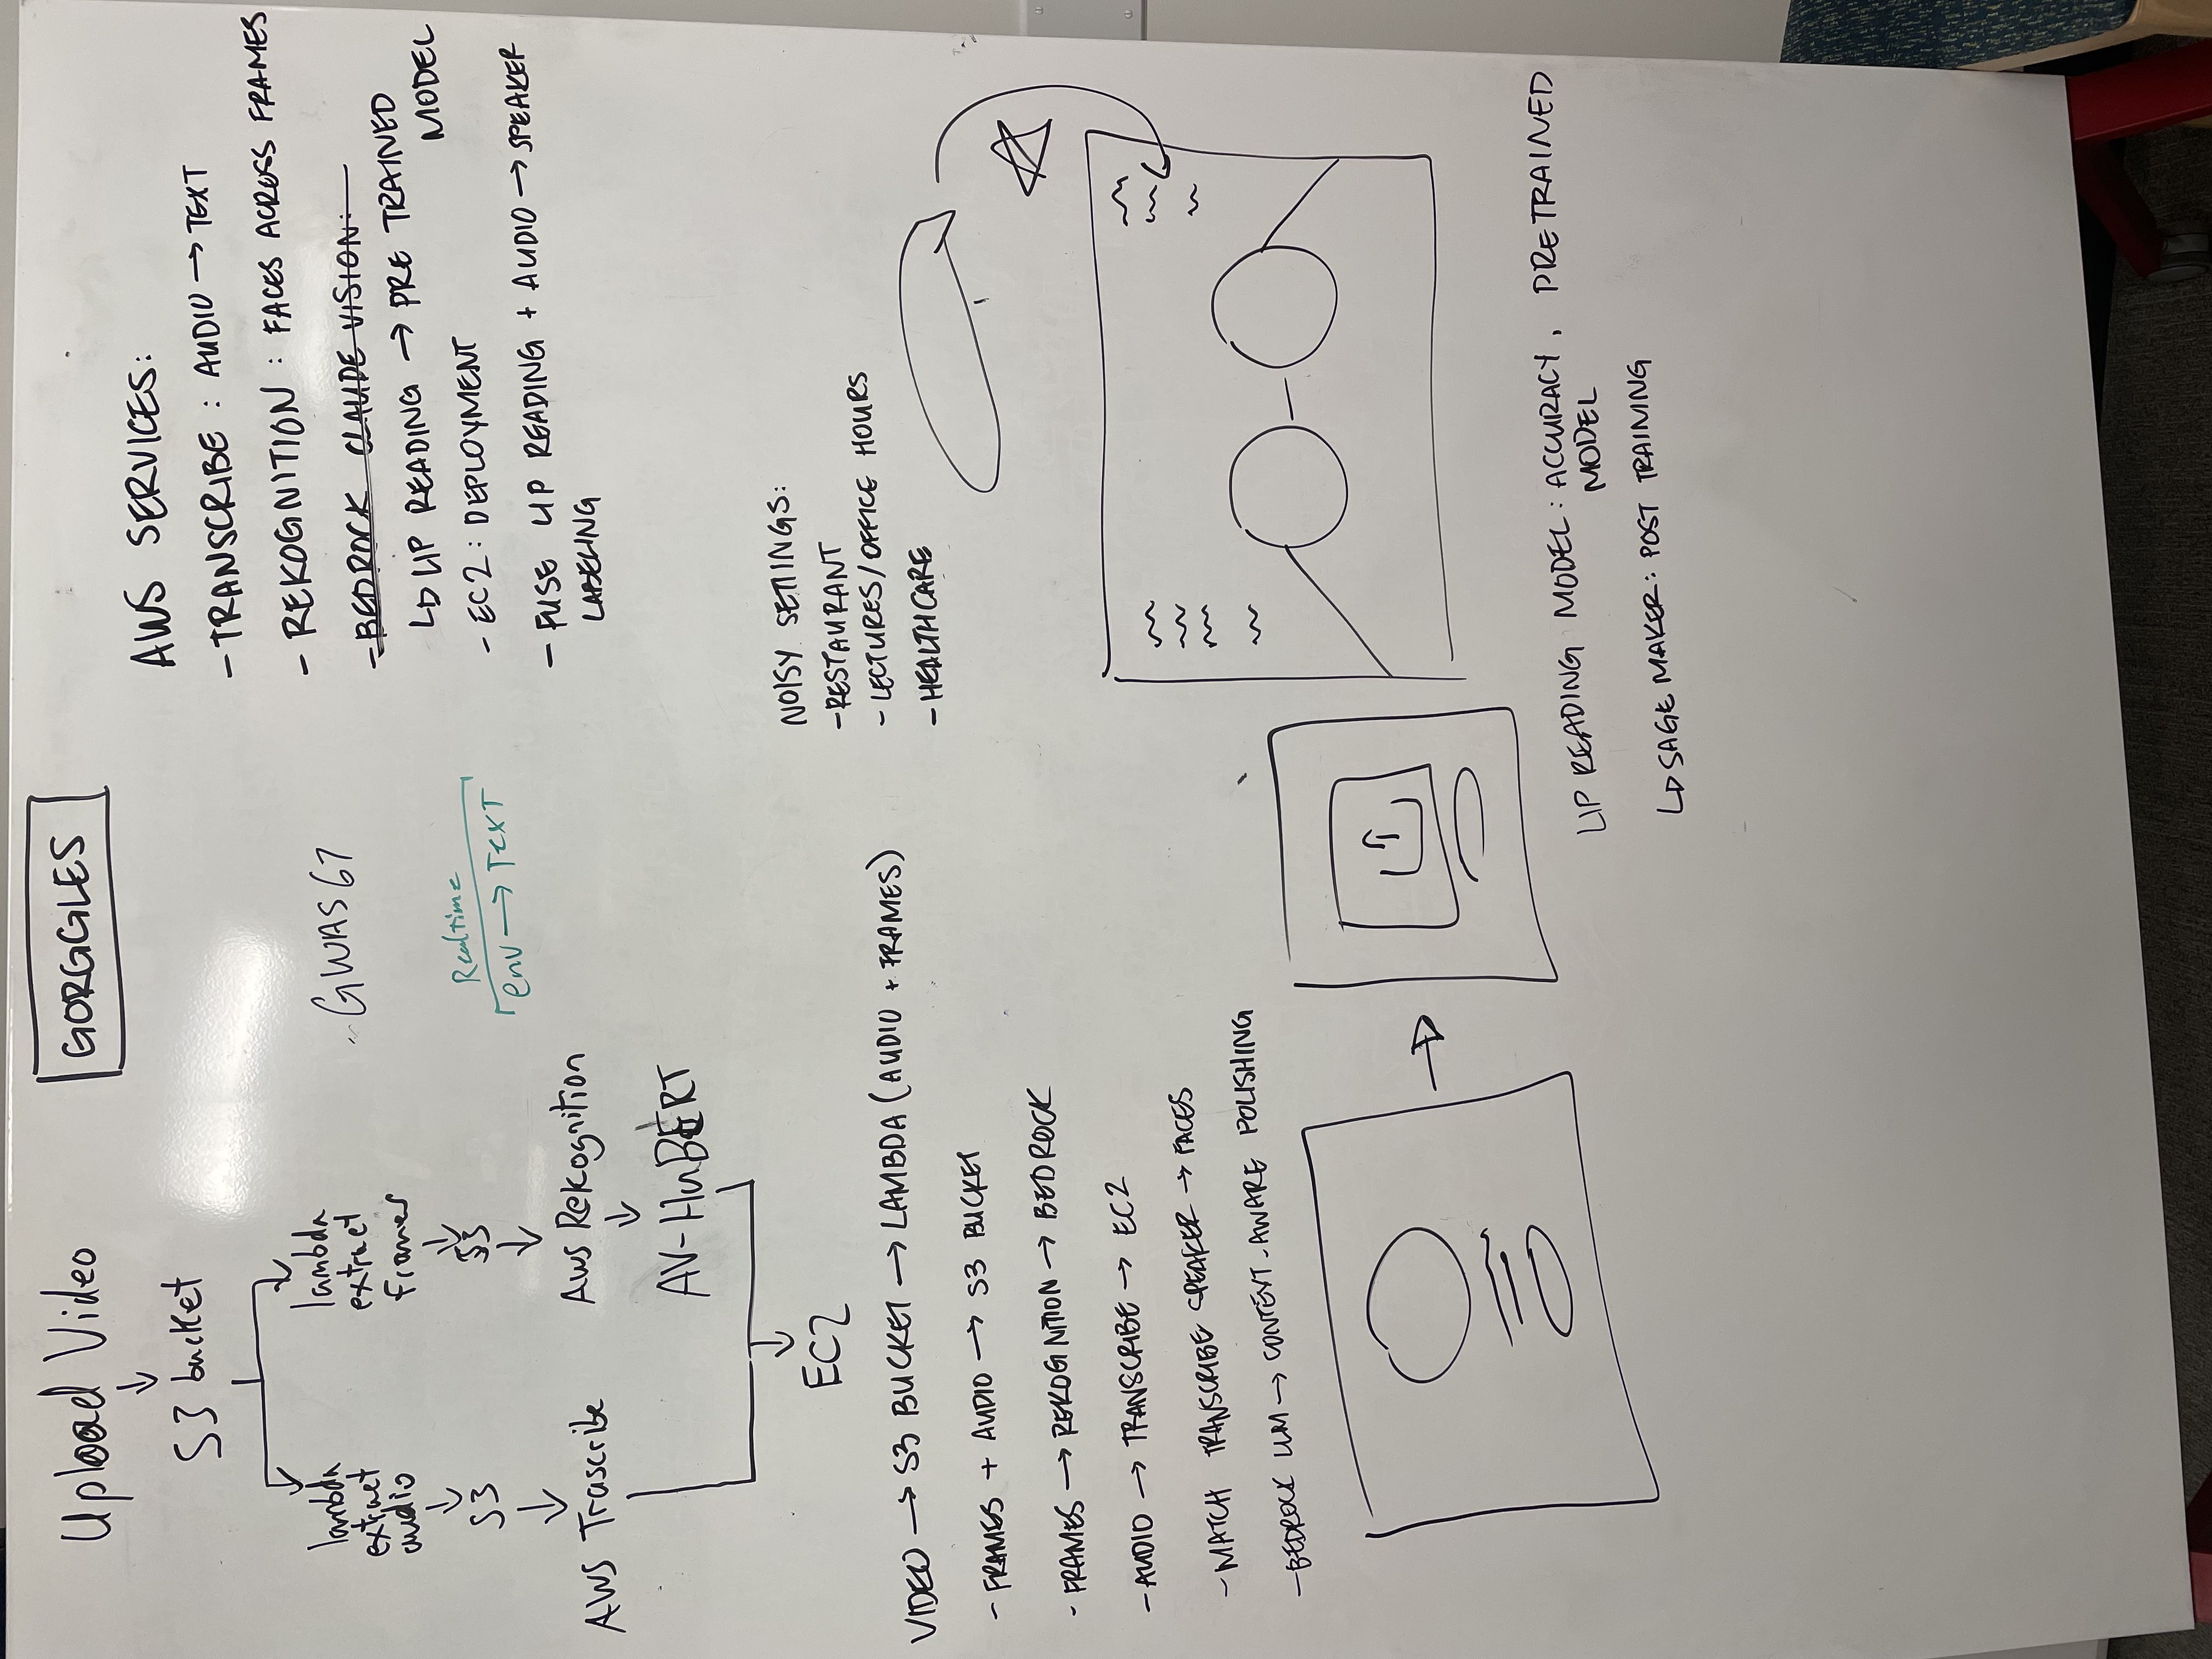 GORGGLES
Upload Video
↓
S3 bucket
lambda
extract
audio
↓
S3
↓
AWS Trascribe
lambda
extract
frames
↓
S3
↓
AWS Rekognition
↓
AV-HuBERT
↓
EC2
GWAS67
Realtime
env → Text
AWS SERVICES:
- TRANSCRIBE : AUDIO → TEXT
- REKOGNITION : FACES ACROSS FRAMES
- BEDROCK CLAUDE VISION:
LIP READING → PRE TRAINED
MODEL
- EC2 : DEPLOYMENT
- FUSE LIP READING + AUDIO → SPEAKER
LABELING
VIDEO → S3 BUCKET → LAMBDA (AUDIO + FRAMES)
- FRAMES + AUDIO → S3 BUCKET
- FRAMES → REKOGNITION → BEDROCK
- AUDIO → TRANSCRIBE → EC2
- MATCH TRANSCRIBE SPEAKER → FACES
- BEDROCK LLM → CONTEXT-AWARE POLISHING
NOISY SETTINGS:
- RESTAURANT
- LECTURES/OFFICE HOURS
- HEALTHCARE
LIP READING MODEL : ACCURACY, PRETRAINED
MODEL
SAGE MAKER: POST TRAINING